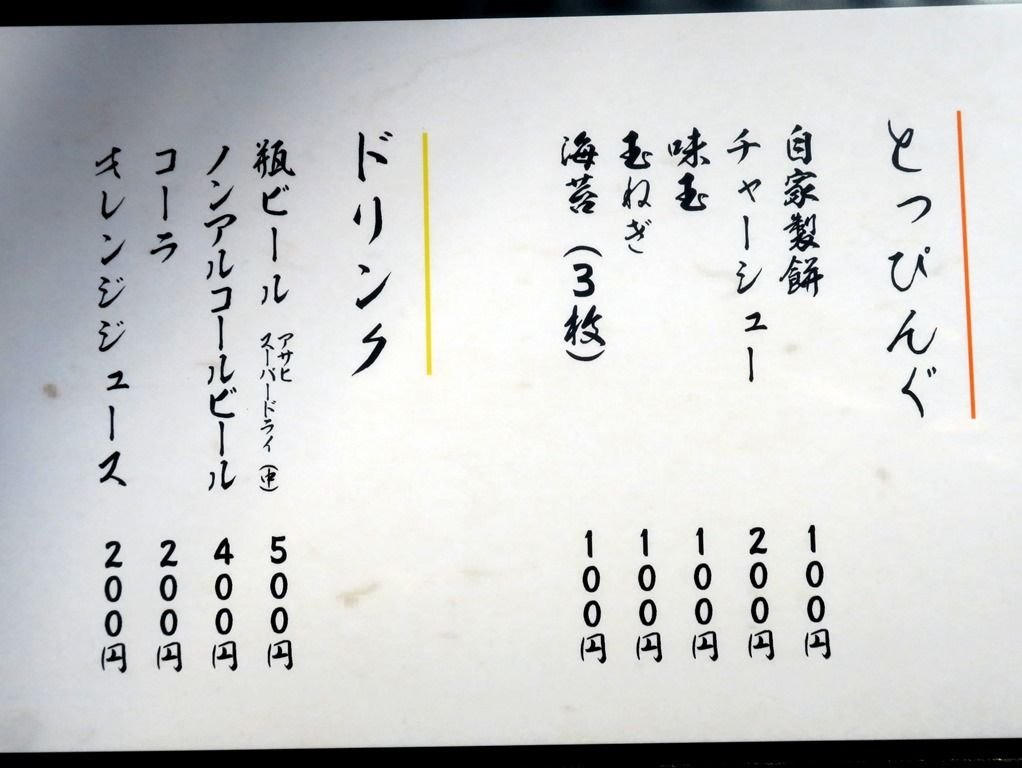 とっぴんぐ
自家製餅 100円
チャーシュー 200円
味玉 100円
玉ねぎ 100円
海苔（3枚） 100円
ドリンク
瓶ビール アサヒスーパードライ（中） 500円
ノンアルコールビール 400円
コーラ 200円
オレンジジュース 200円